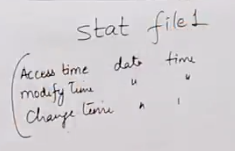 stat file1
Access time date time
modify Time " "
Change Time " "